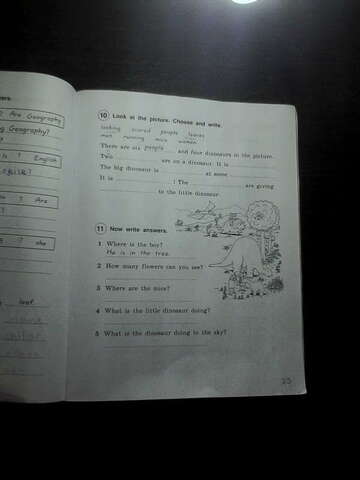 ers.
? Are Geography
g Geography?
s ? English
? Are
? she
leaf.
10 Look at the picture. Choose and write.
looking scared people leaves
men running mice women
There are six people and four dinosaurs in the picture.
Two are on a dinosaur. It is
The big dinosaur is at some
It is ! The are giving
to the little dinosaur.
11 Now write answers.
1 Where is the boy?
He is in the tree.
2 How many flowers can you see?
3 Where are the mice?
4 What is the little dinosaur doing?
5 What is the dinosaur doing in the sky?
25